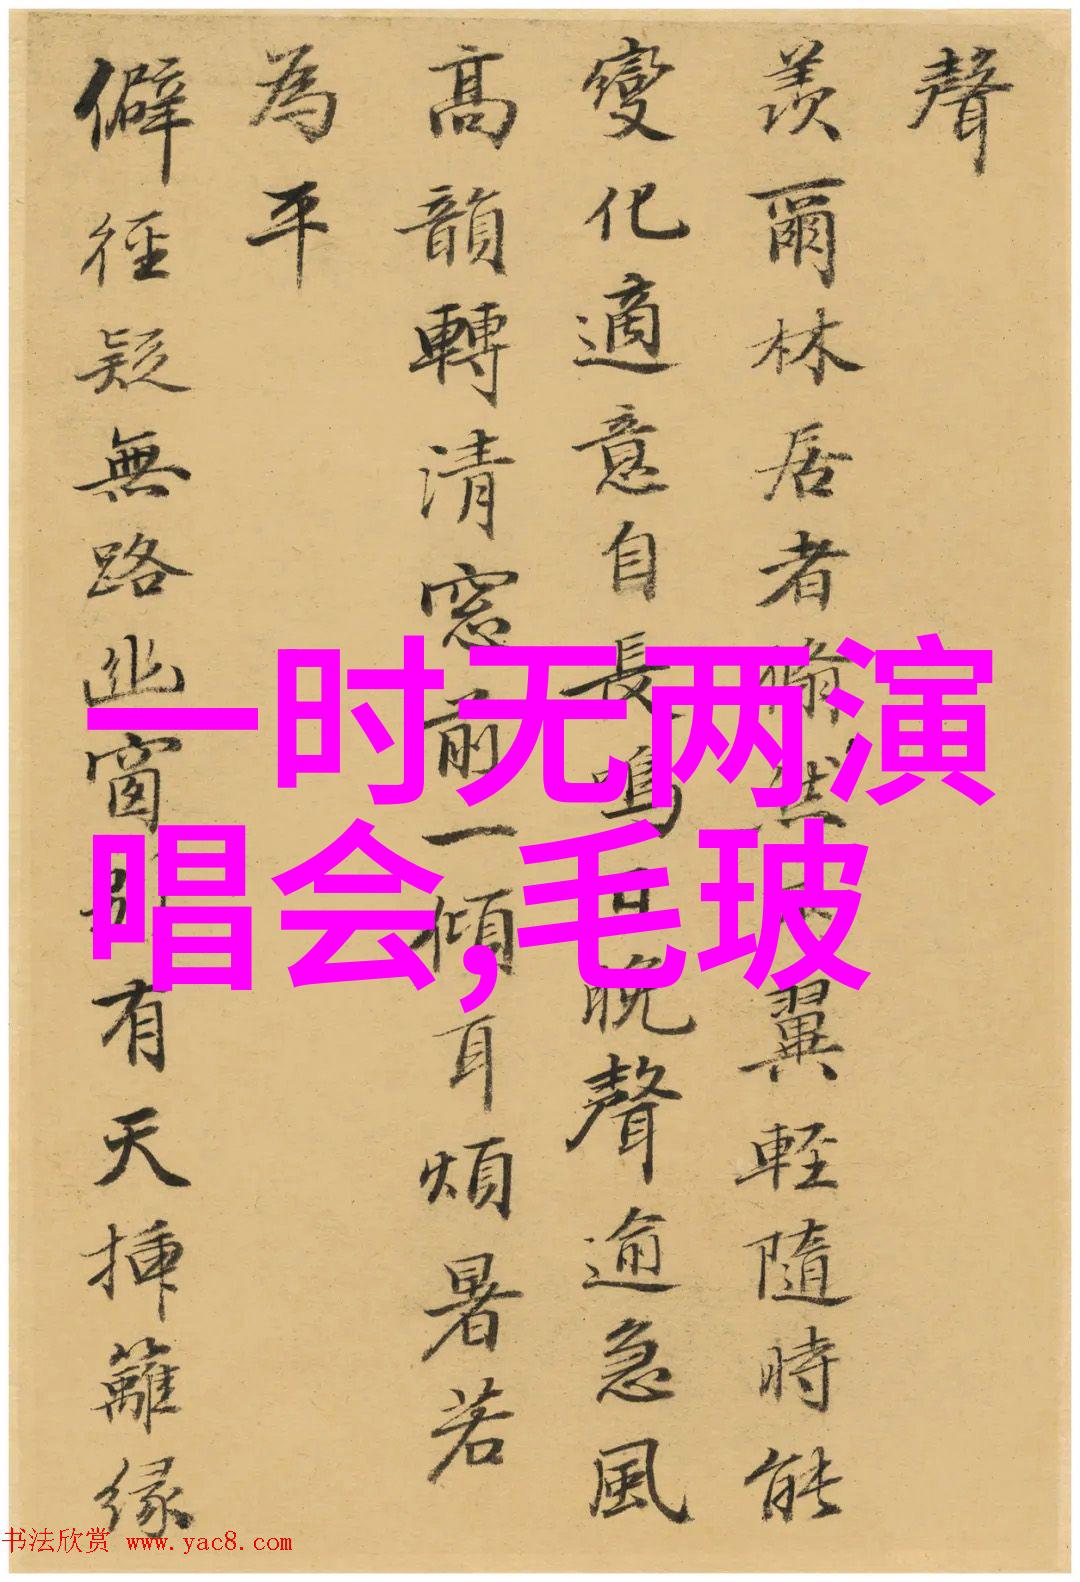 聲
羨爾林居者翛然翼輕隨時能
變化適意自長鳴日晚聲逾急風
高韻轉清窓前一傾耳煩暑若
為平
僻徑疑無路幽窗別有天挿籬緣
一时无两演
唱会,毛玻
书法欣赏 www.yac8.com